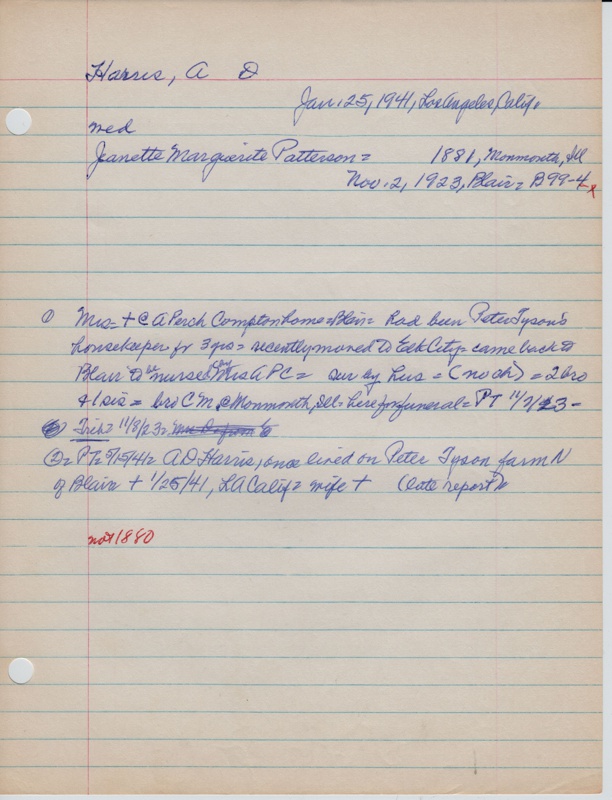 Harris, A D
Jan. 25, 1941, Los Angeles, Calif.
med
Jeanette Marguerite Patterson = 1881, Monmouth, Ill
Nov. 2, 1923, Blair = B99-4
① Mrs = + @ A Perch Compton home = Blair = had been Peter Tyson's
housekeeper for 3 yrs = recently moved to Elk City = came back to
Blair to be nursed by Mrs A P C = sur by hus = (no ch) = 2 bro
& 1 sis = bro C M P Monmouth, Ill = here for funeral = PT 11/7/23 =
Trib = 11/8/23 =
② = PT = 5/15/41 = A D Harris, once lived on Peter Tyson farm N
of Blair + 1/25/41, LA Calif = wife + (late report)
not 1880